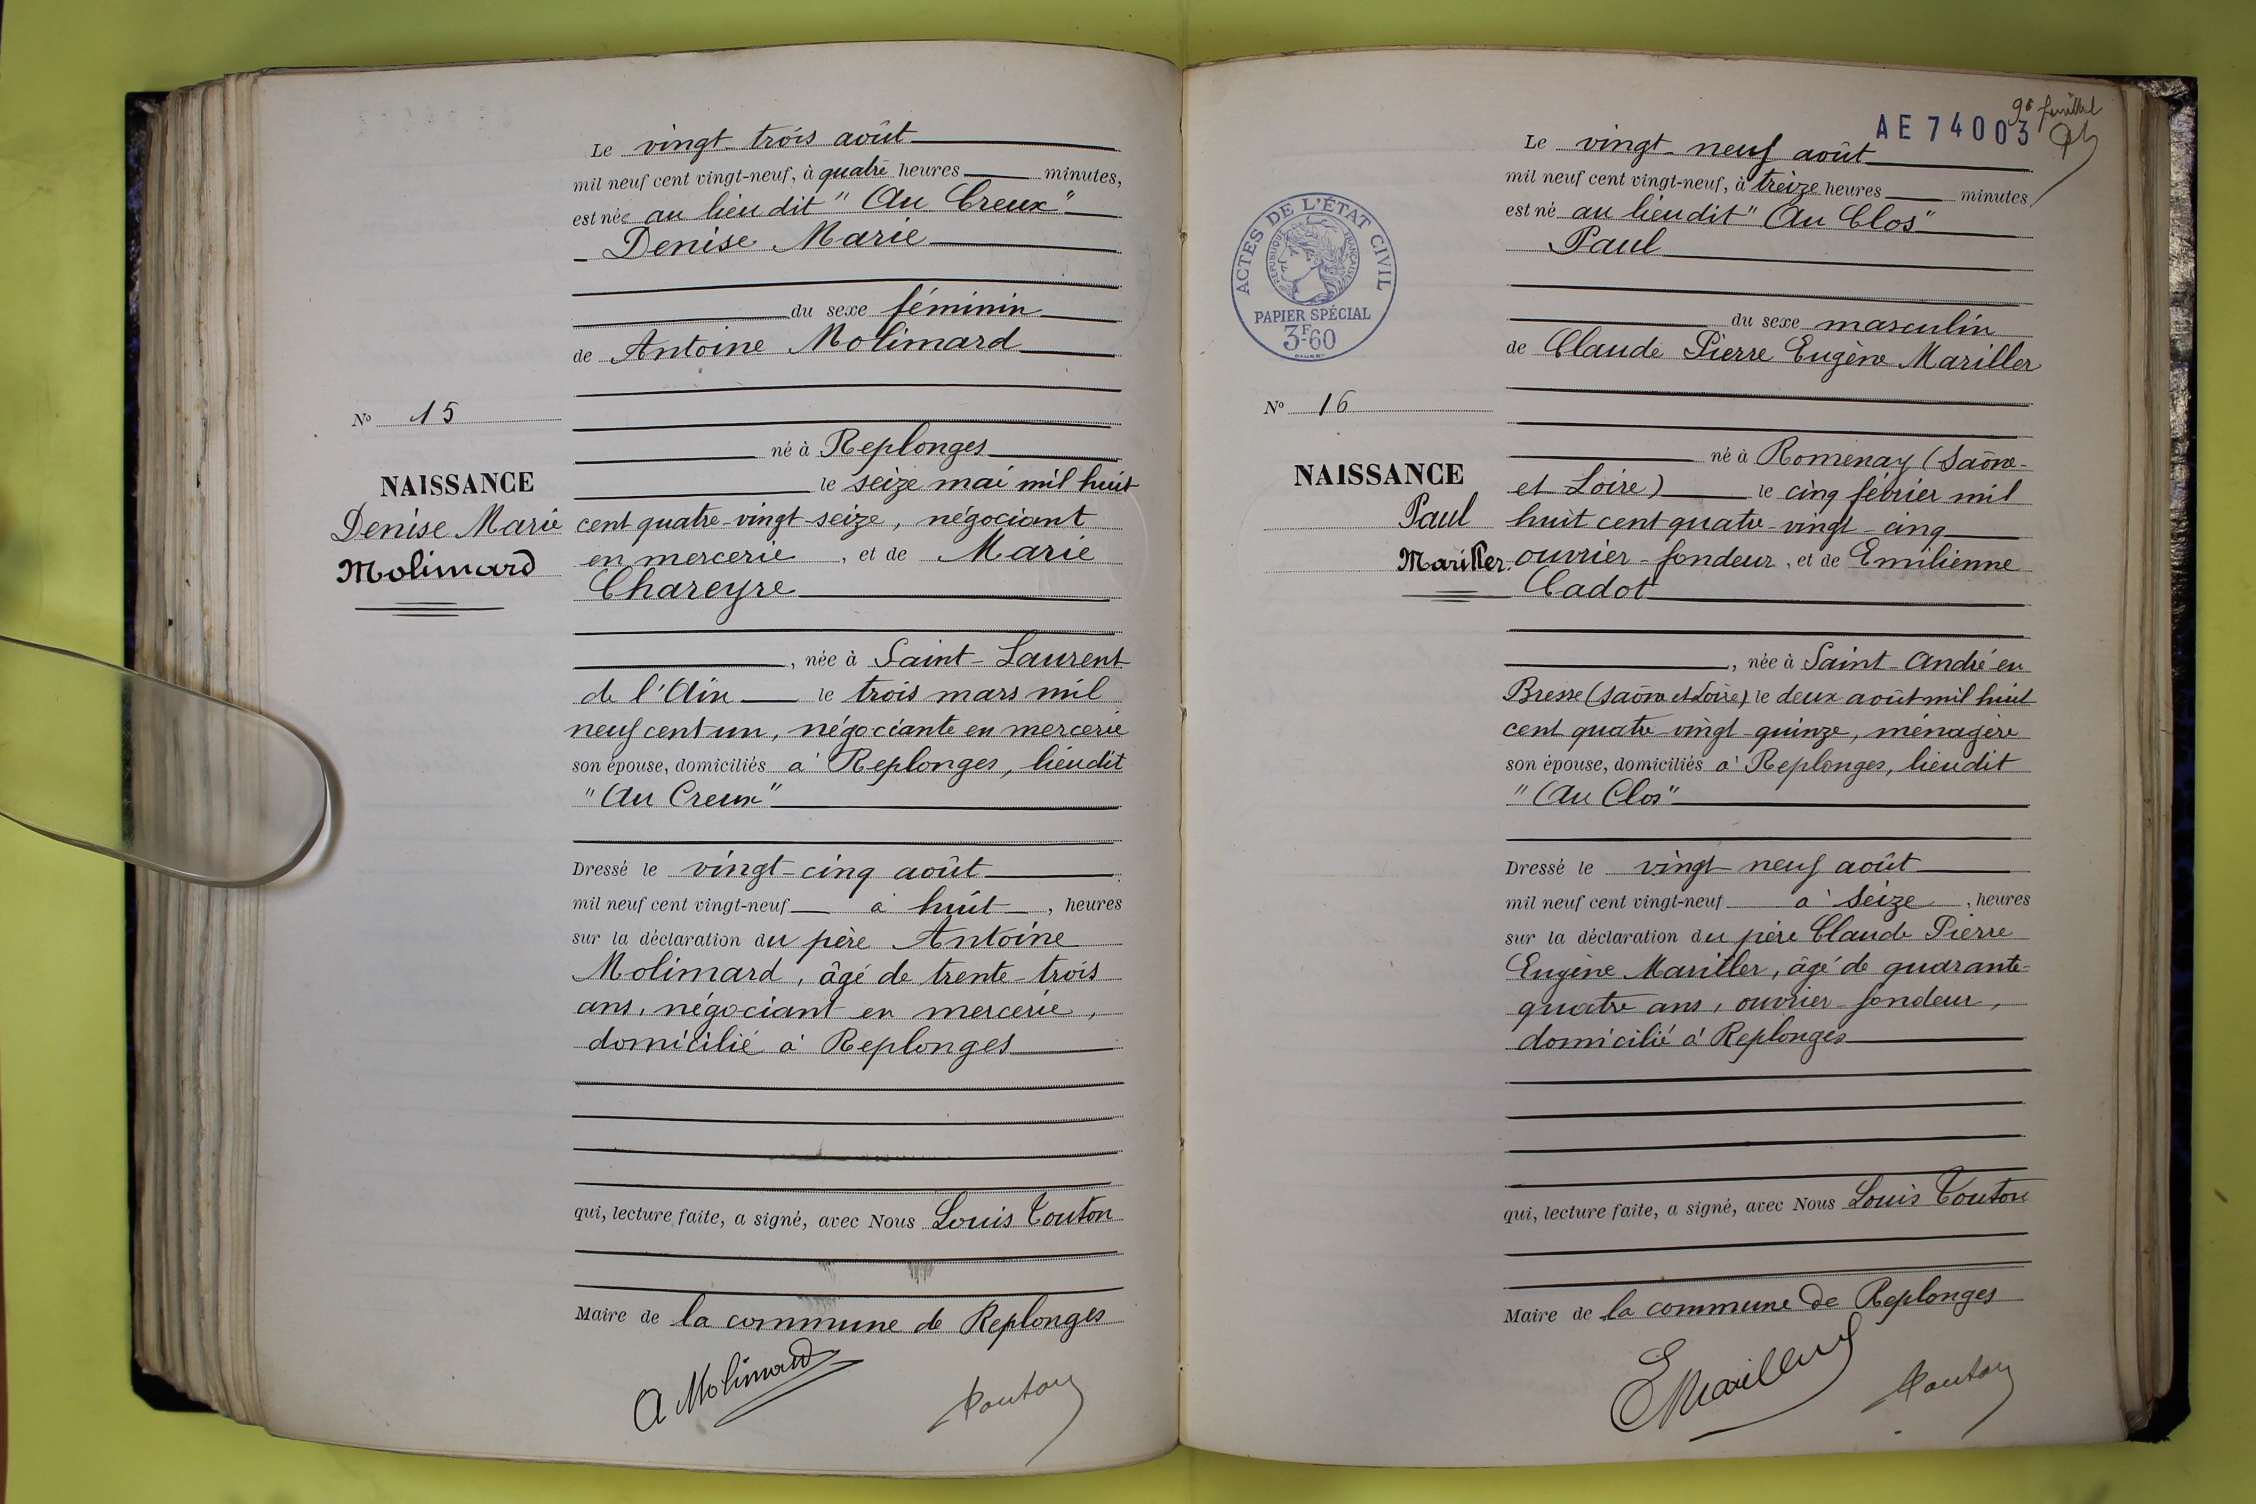 Le vingt-trois août
mil neuf cent vingt-neuf, à quatre heures minutes,
est née au lieu dit "Au Creux"
Denise Marie
du sexe féminin
de Antoine Molimard
N° 15
né à Replonges
NAISSANCE
le seize mai mil huit
Denise Marie
cent quatre-vingt-seize, négociant
Molimard
en mercerie, et de Marie
Chareyre
, née à Saint-Laurent
de l'Ain le trois mars mil
neuf cent un, négociante en mercerie
son épouse, domiciliés à Replonges, lieudit
"Au Creux"
Dressé le vingt-cinq août
mil neuf cent vingt-neuf à huit, heures
sur la déclaration du père Antoine
Molimard, âgé de trente-trois
ans, négociant en mercerie,
domicilié à Replonges
qui, lecture faite, a signé, avec Nous Louis Touton
Maire de la commune de Replonges
A Molimard
Touton
9e feuillet
AE 74003
Le vingt-neuf août
mil neuf cent vingt-neuf, à treize heures minutes
est né au lieudit "Au Clos"
Paul
ACTES DE L'ÉTAT CIVIL
RÉPUBLIQUE FRANÇAISE
PAPIER SPÉCIAL
3F60
du sexe masculin
de Claude Pierre Eugène Mariller
N° 16
né à Romenay (Saône-
NAISSANCE
et Loire) le cinq février mil
Paul
huit cent quatre-vingt-cinq
Mariller.
ouvrier-fondeur, et de Emilienne
Cadot
, née à Saint-André en
Bresse (Saône et Loire) le deux août mil huit
cent quatre-vingt-quinze, ménagère
son épouse, domiciliés à Replonges, lieudit
"Au Clos"
Dressé le vingt-neuf août
mil neuf cent vingt-neuf à seize, heures
sur la déclaration du père Claude Pierre
Eugène Mariller, âgé de quarante-
quatre ans, ouvrier-fondeur,
domicilié à Replonges
qui, lecture faite, a signé, avec Nous Louis Touton
Maire de la commune de Replonges
E Mariller
Touton